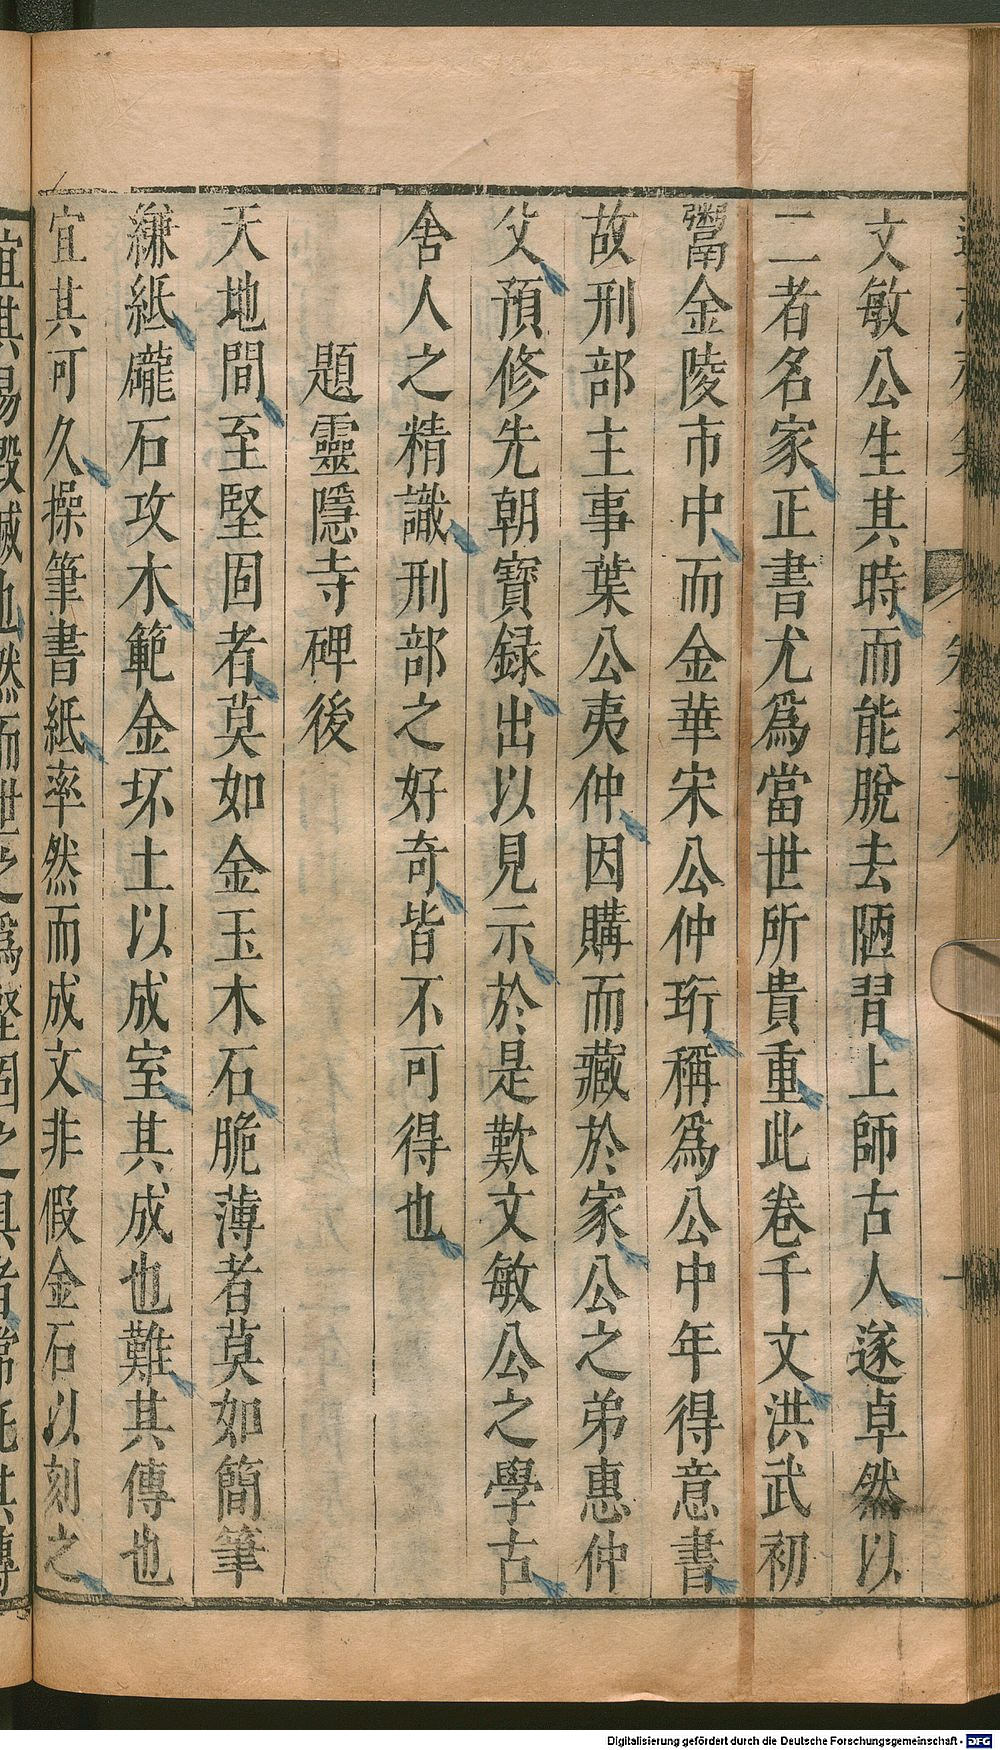 文敏公生其時而能脫去陋習上師古人遂卓然以
二者名家正書尤爲當世所貴重此卷千文洪武初
鬻金陵市中而金華宋公仲珩稱爲公中年得意書
故刑部主事葉公夷仲因購而藏於家公之弟惠仲
父預修先朝寶録出以見示於是歎文敏公之學古
舍人之精識刑部之好奇皆不可得也
題靈隱寺碑後
天地間至堅固者莫如金玉木石脆薄者莫如簡筆
縑紙礲石攻木範金坏土以成室其成也難其傳也
宜其可久操筆書紙率然而成文非假金石以刻之
宜其易毀滅也然而世之爲堅固之具者常託其傳
Digitalisierung gefördert durch die Deutsche Forschungsgemeinschaft - DFG